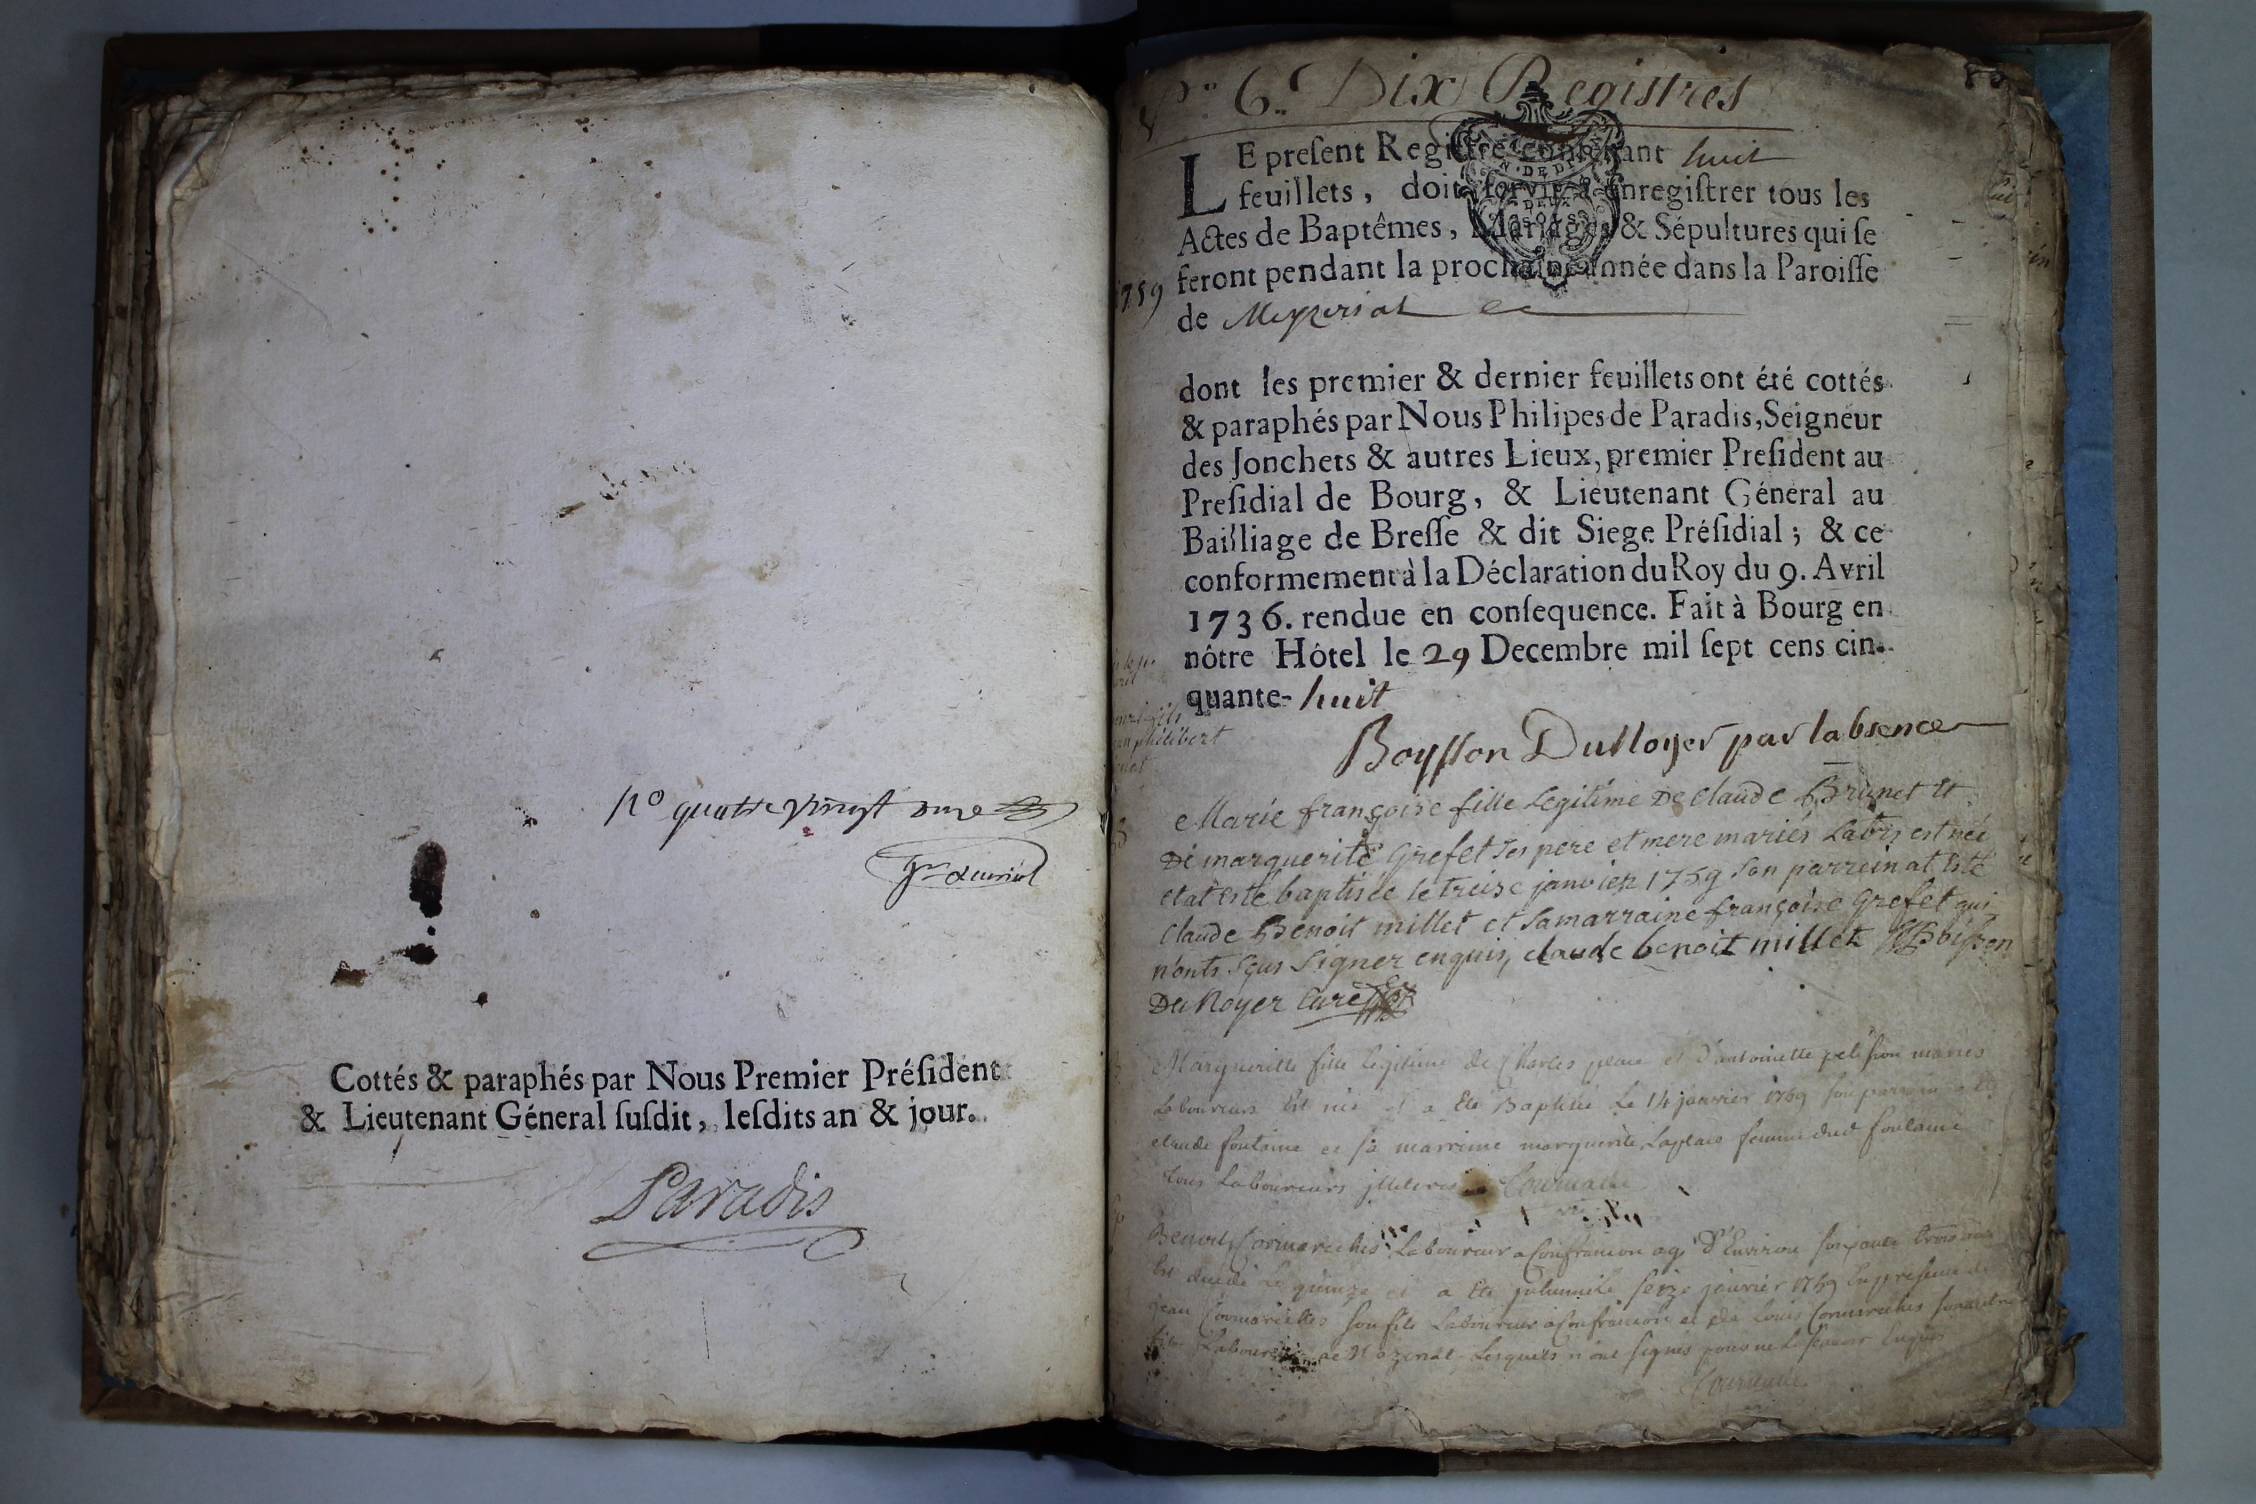 no quatre vingt onze
Cottés & paraphés par Nous Premier Préſident
& Lieutenant Géneral ſuſdit, leſdits an & jour.
Paradis
6. Dix Registres
LE preſent Regiſtre contenant huit
feuillets, doit ſervir à enregiſtrer tous les
Actes de Baptêmes, Mariages & Sépultures qui ſe
feront pendant la prochaine année dans la Paroiſſe
1759
de Mezeriat
dont les premier & dernier feuillets ont été cottés
& paraphés par Nous Philipes de Paradis, Seigneur
des Jonchets & autres Lieux, premier Preſident au
Preſidial de Bourg, & Lieutenant Géneral au
Bailliage de Breſſe & dit Siege Préſidial; & ce
conformement à la Déclaration du Roy du 9. Avril
1736. rendue en conſequence. Fait à Bourg en
nôtre Hôtel le 29 Decembre mil ſept cens cin-
quante-huit
Boysson Dunoyer par labsence
Marie françoise fille Legitime De Claude Brunet et
De marguerite Grefet ses pere et mere mariés Labrs est née
et at esté baptisée le treize janvier 1759 son parrein at esté
Claude Benoit millet et sa marraine françoise Grefet qui
n'onts sçus signer enquis, claude benoit millet Boisson
Du Noyer Curé
Marguerite fille legitime de Charles et d'antoinette pelisson mariés
Laboureurs est née et a été Baptisée Le 14 janvier 1759 son parrein a été
claude fontaine et sa marrine marguerite femme dud fontaine
tous Laboureurs
Benoit Cormareches Laboureur a Confrancon agé D'Environ soixante trois ans
Est decedé Le quinze et a Eté inhumé le seize janvier 1759 En presence de
jean Cormareches son fils Laboureur a Confrancon et de Louis Cormareches son autre
fils Laboureur Lesquels n'ont signés pour ne Le sçavoir Enquis